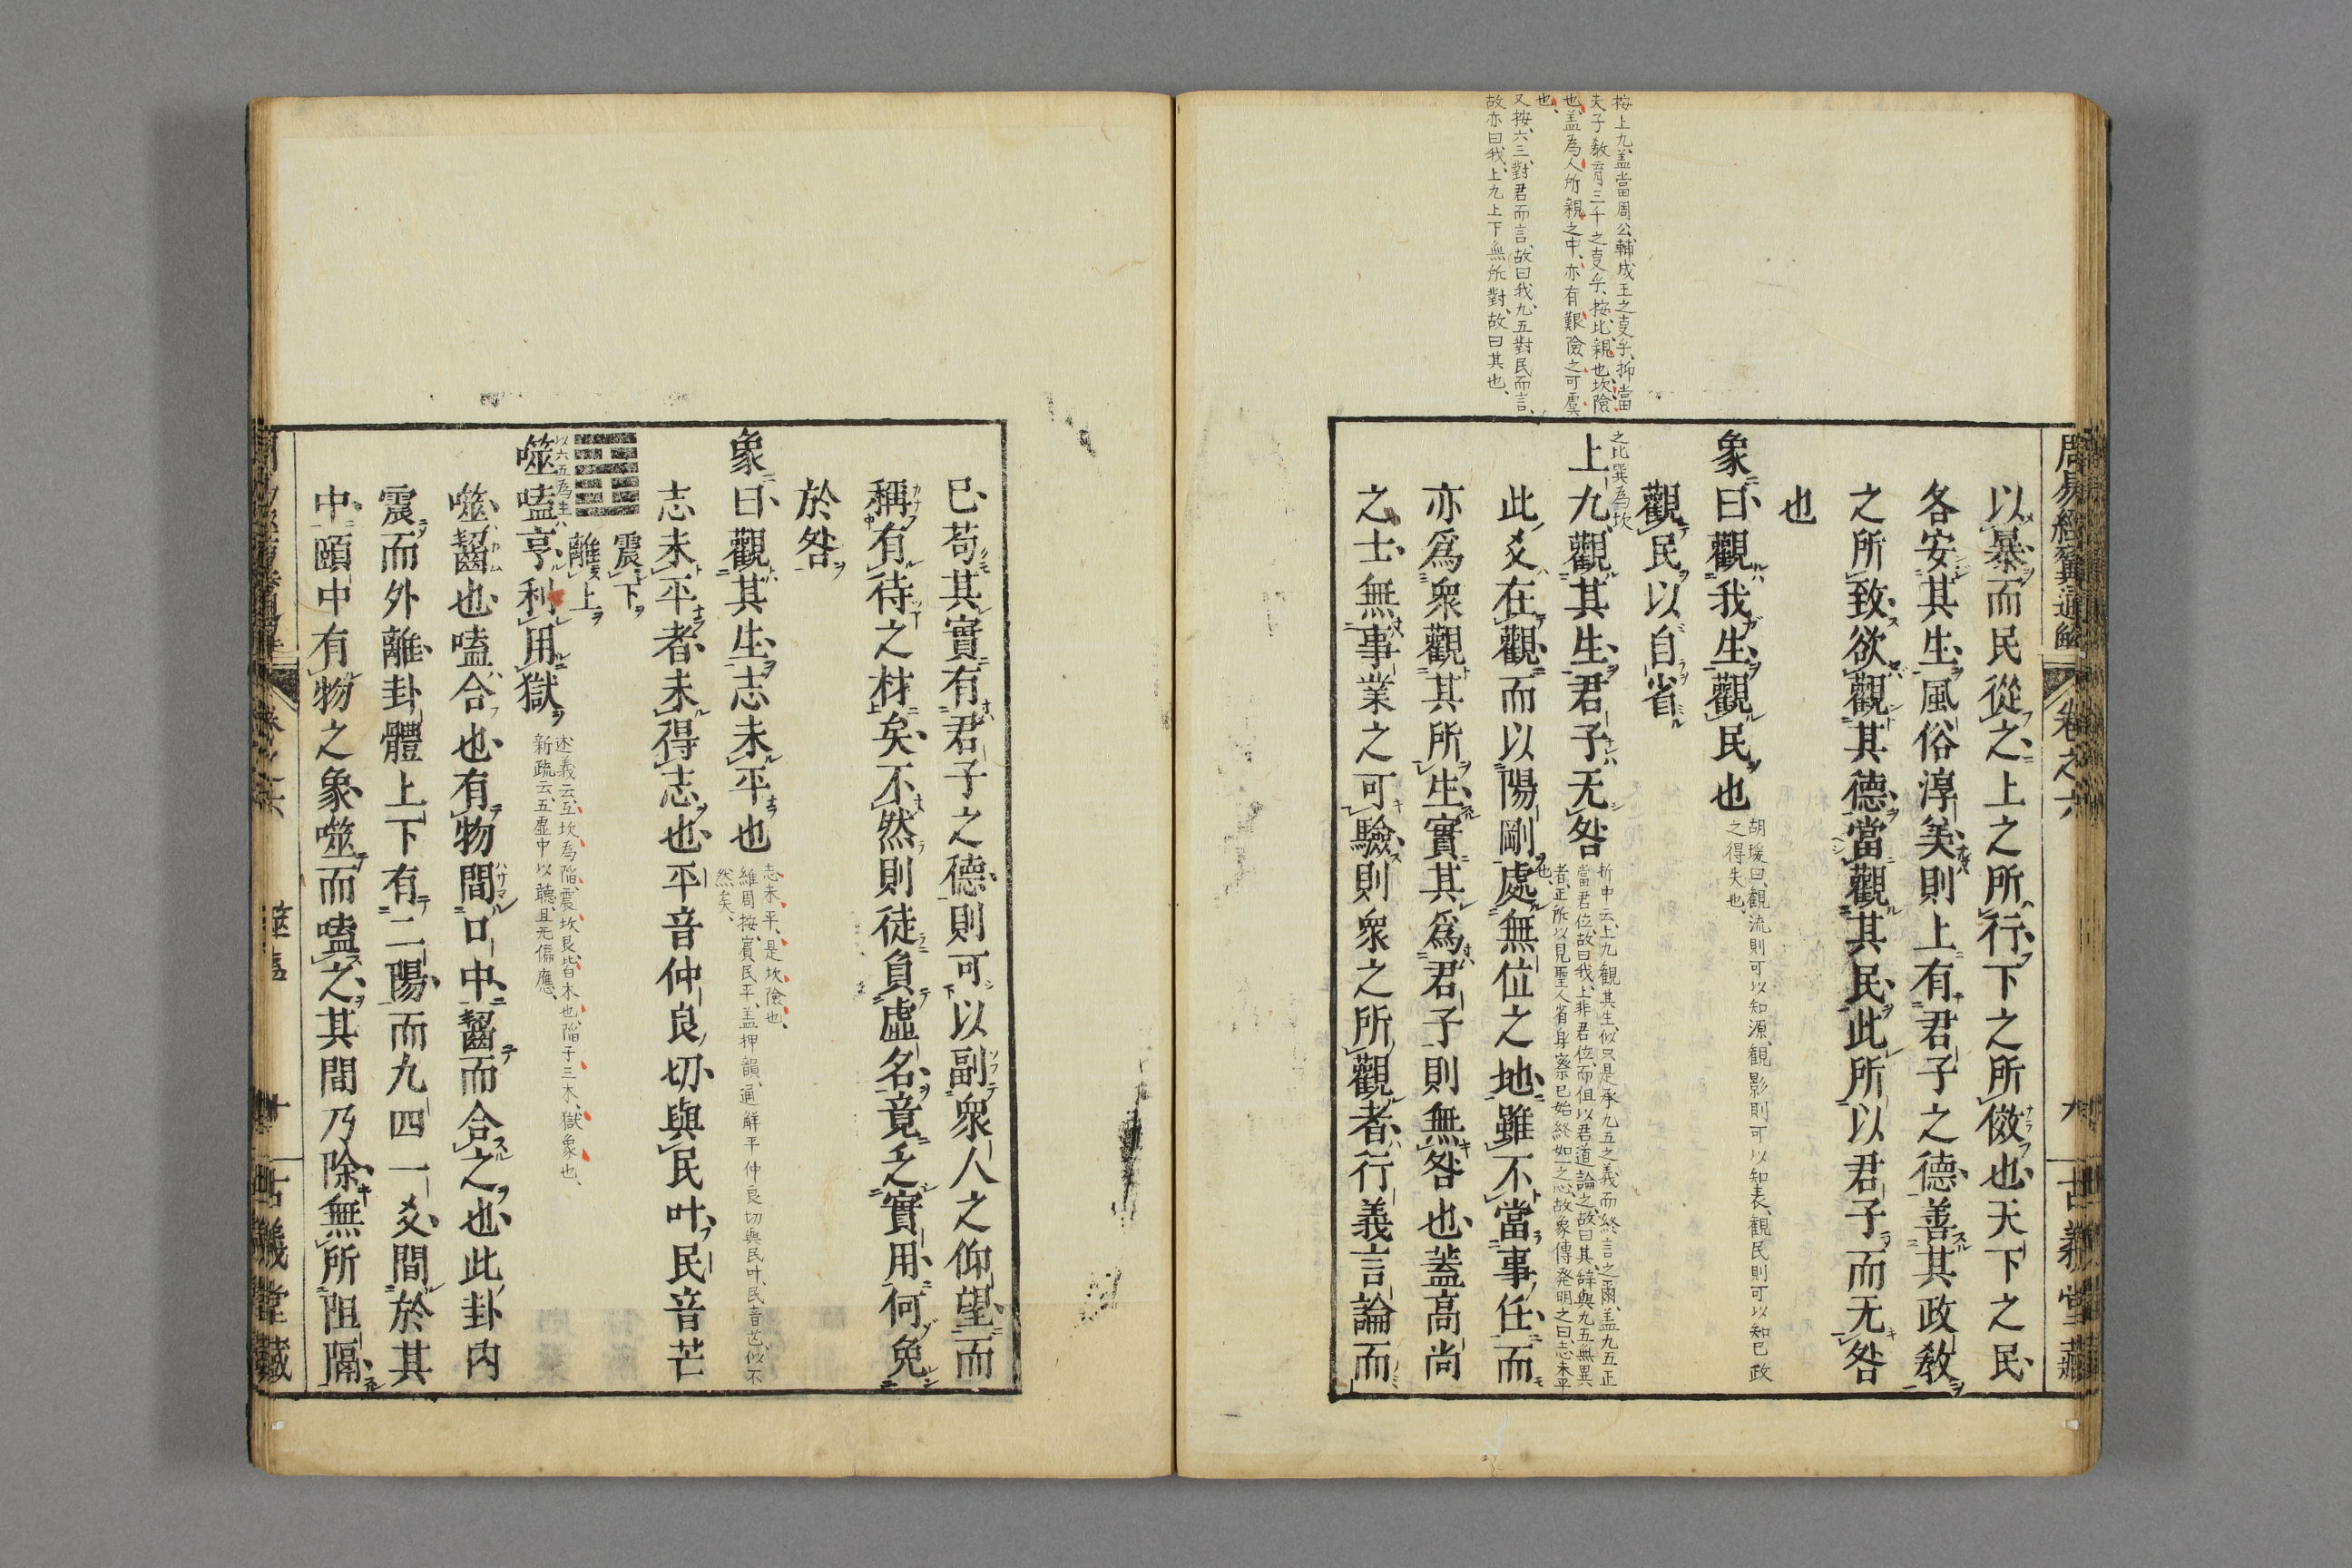 按上九、蓋當周公輔成王之㕝乎、抑當
夫子教育三千之㕝乎、按、比、親也、坎險
也、蓋為人所親之中、亦有艱險之可虞
也、
又按、六三對君而言、故曰我、九五對民而言、
故亦曰我、上九上下無所對、故曰其也、
周易經翼通解
卷之六
九
古義堂藏
以暴而民從之上之所行下之所傚也天下之民
各安其生風俗淳美則上有君子之德善其政教
之所致欲觀其德當觀其民此所以君子而无咎
也
象曰觀我生觀民也
胡瑗曰、觀流則可以知源、觀影則可以知表、觀民則可以知已政
之得失也、
觀民以自省
之比巽為坎
上九觀其生君子无咎
折中云、上九觀其生、似只是承九五之義而終言之爾、蓋九五正
當君位、故曰我、上非君位、而但以君道論之、故曰其、辭與九五無異
者、正所以見聖人省身察已始終如一之心、故象傳発明之曰志未平
也、
此爻在觀而以陽剛處無位之地雖不當事任而
亦爲衆觀其所生實其爲君子則無咎也蓋高尚
之士無事業之可驗則衆之所觀者行義言論而
已苟其實有君子之德則可以副衆人之仰望而
稱有待之材矣不然則徒負虛名竟乏實用何免
於咎
象曰觀其生志未平也
志未平、是坎險也、
維周按、賓民平、蓋押韻、通解平仲良切與民叶、民音芒、似不
然矣、
志未平者未得志也平音仲良切與民叶民音芒
震下
離上
以六五為主
噬嗑亨利用獄
述義云、互坎為陷、震坎艮皆木也、陷于三木、獄象也、
新疏云、五虛中以聽、且无偏應、
噬齧也嗑合也有物間口中齧而合之也此卦内
震而外離卦體上下有二陽而九四一爻間於其
中頤中有物之象噬而嗑之其間乃除無所阻隔
卷之六
噬嗑
十
古義堂藏